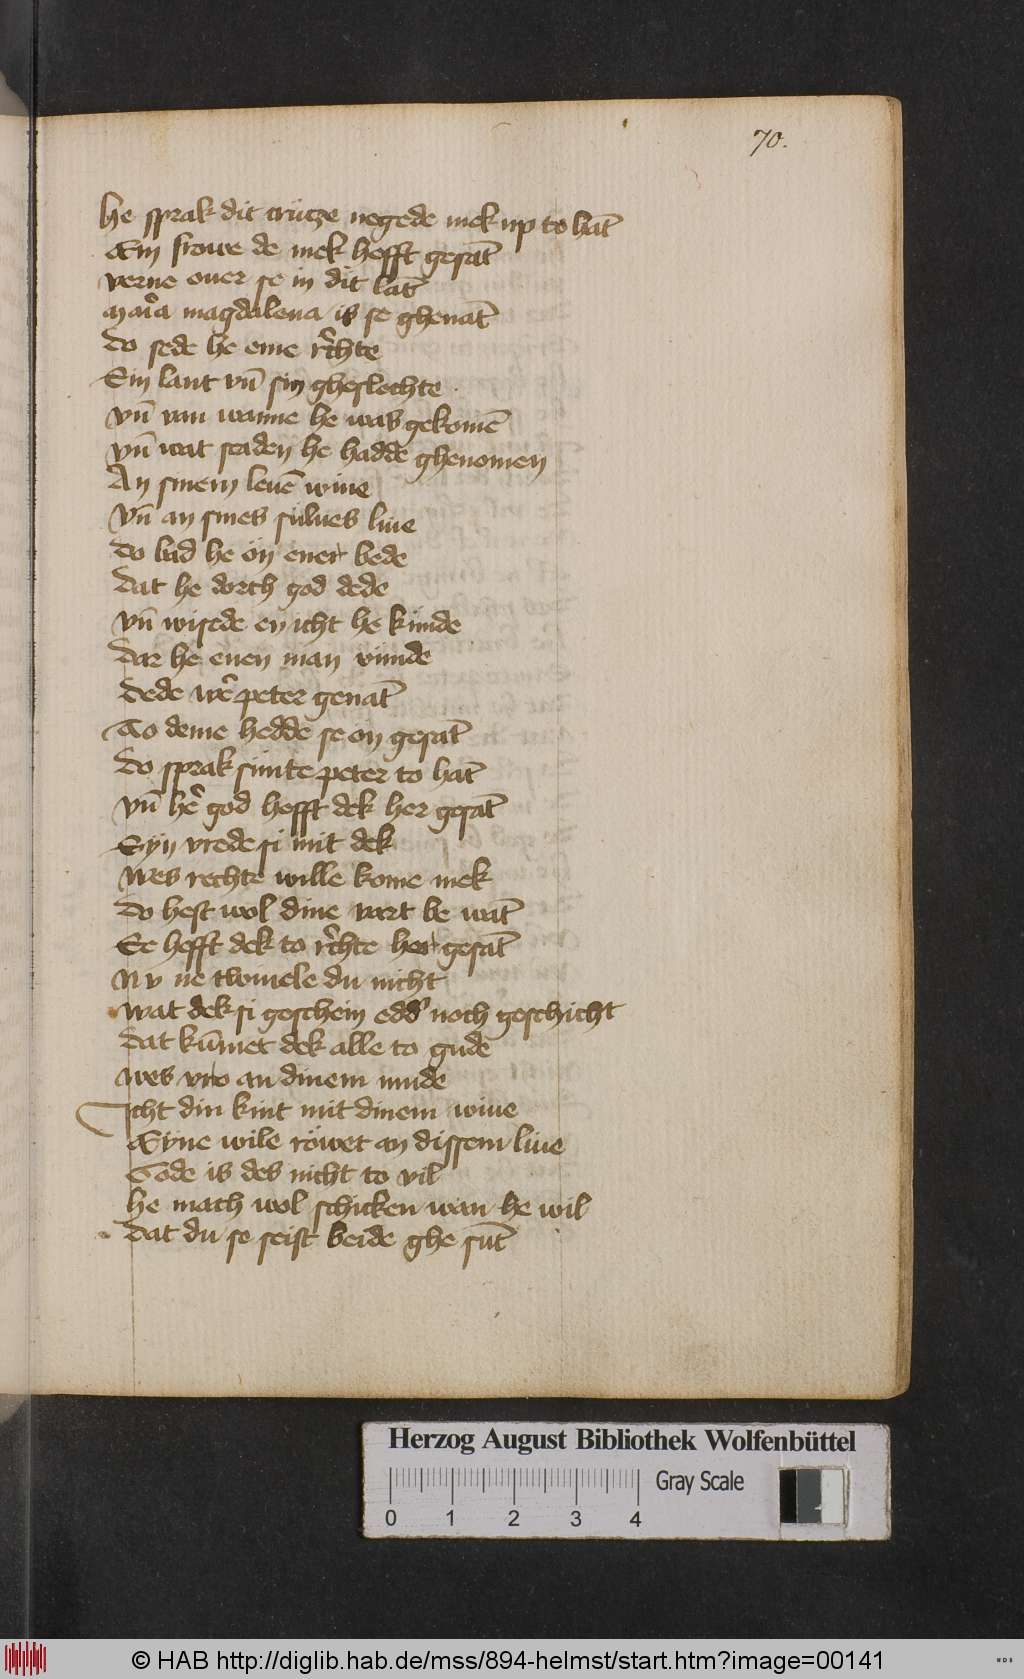 70.
he sprak dit crutze negede mek up to hāt
Ein frowe de mek hefft gesāt
verne ouer se in dit lāt
maria magdalena is se ghenāt
do sede he eme rechte
Sin lant vn̄ sin gheslechte
vn̄ van wanne he was gekomē
vn̄ wat scaden he hadde ghenomen
An sinem leuē wiue
vn̄ an sines sulues liue
do bad he ön ener bede
dat he dorch god dede
vn̄ wisede en icht he kunde
dar he enen man vunde
dede wer peter genāt
To deme hedde se on gesāt
do sprak sunte peter to hāt
vn̄ her god hefft dek her gesāt
Syn vrede si mit dek
wes rechte wille kome mek
do hest wol dine vart be wāt
Se hefft dek to rechte her gesāt
Nv ne twiuele du nicht
wat dek si geschein edder noch geschicht
dat kūmet dek alle to gude
wes vro an dinem mude
Icht din kint mit dinem wiue
Eyne wile röwet an dissem liue
Gode is des nicht to vil
he mach wol schicken wan he wil
dat du se seist beide ghe sūt
Herzog August Bibliothek Wolfenbüttel
Gray Scale
0 1 2 3 4
© HAB http://diglib.hab.de/mss/894-helmst/start.htm?image=00141